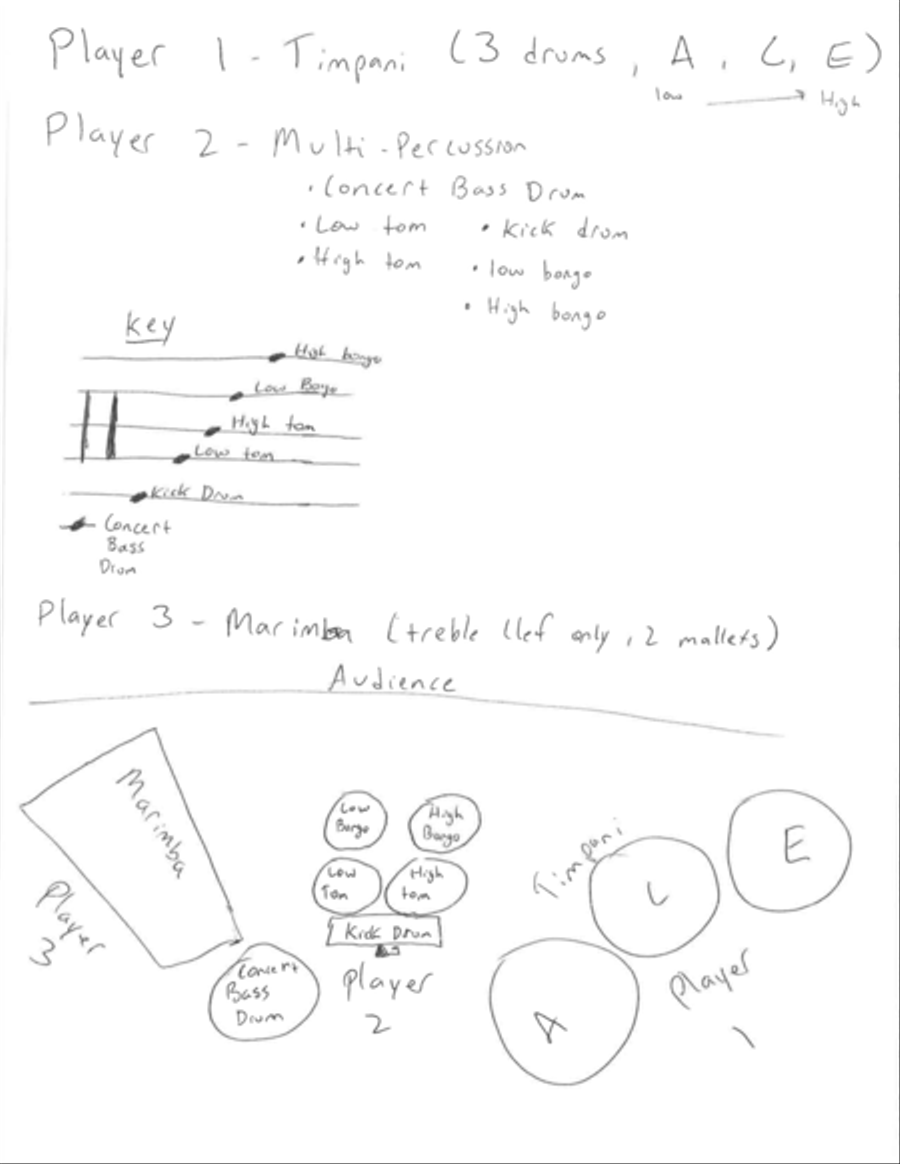 Player 1 - Timpani (3 drums, A, C, E)
low → High
Player 2 - Multi-Percussion
• Concert Bass Drum
• Low tom • Kick drum
• High tom • low bongo
• High bongo
Key
High bongo
Low Bongo
High tom
Low tom
Kick Drum
Concert
Bass
Drum
Player 3 - Marimba (treble Clef only, 2 mallets)
Audience
Marimba
Player
3
Concert
Bass
Drum
Low
Bongo
High
Bongo
Low
Tom
High
tom
Kick Drum
Player
2
Timpani
A
C
E
Player
1